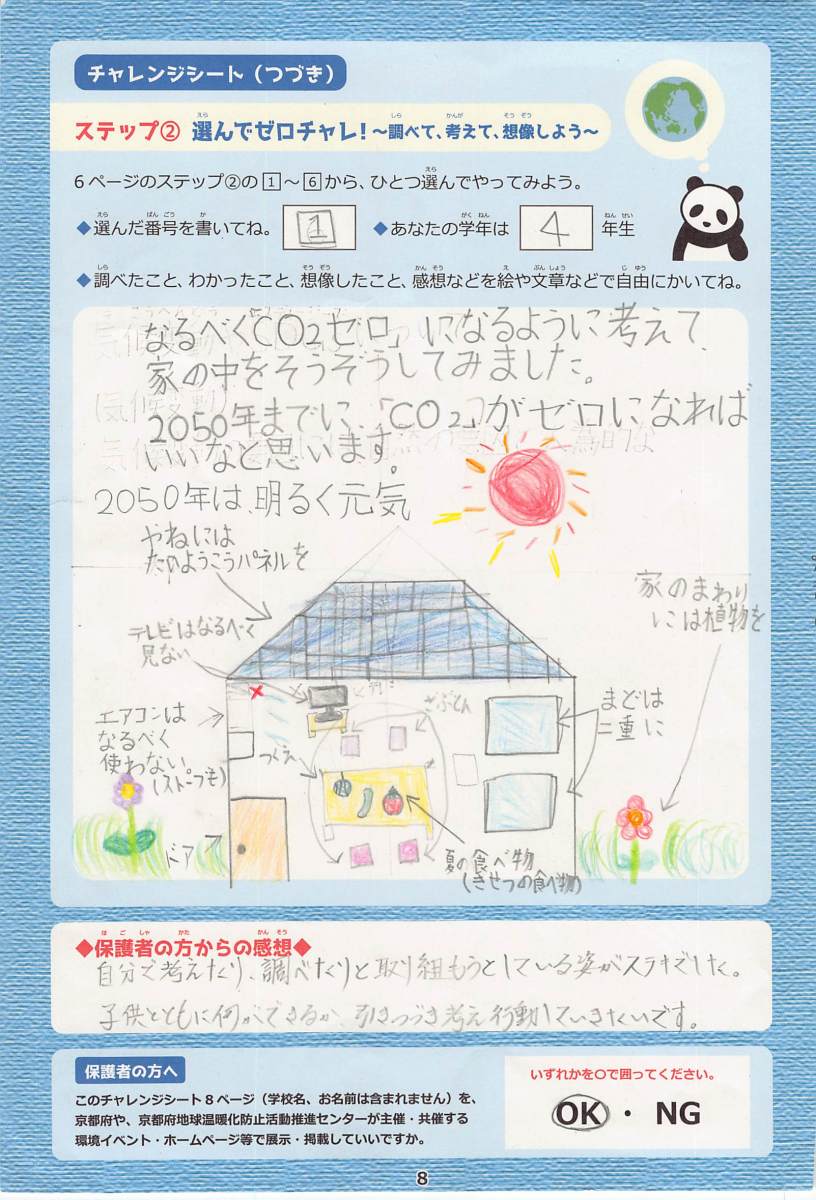 チャレンジシート（つづき）
ステップ② 選んでゼロチャレ！～調べて、考えて、想像しよう～
6ページのステップ②の1～6から、ひとつ選んでやってみよう。
◆選んだ番号を書いてね。 1 ◆あなたの学年は 4 年生
◆調べたこと、わかったこと、想像したこと、感想などを絵や文章などで自由にかいてね。
なるべくCO2ゼロ」になるように考えて、
家の中をそうぞうしてみました。
2050年までに、「CO2」がゼロになれば
いいなと思います。
2050年は、明るく元気
やねには
たいようこうパネルを
家のまわり
には植物を
テレビはなるべく
見ない
ざぶとん
まどは
二重に
エアコンは
なるべく
使わない
(ストーブも)
つくえ
ドア
夏の食べ物
(きせつの食べ物)
◆保護者の方からの感想◆
自分で考えたり、調べたりと取り組もうとしている姿がステキでした。
子供とともに何ができるか、引きつづき考え行動していきたいです。
保護者の方へ
このチャレンジシート8ページ（学校名、お名前は含まれません）を、
京都府や、京都府地球温暖化防止活動推進センターが主催・共催する
環境イベント・ホームページ等で展示・掲載していいですか。
いずれかを○で囲ってください。
OK ・ NG
8